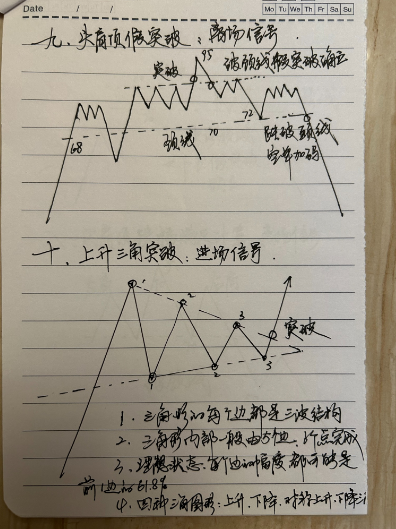 Date / /
Mo Tu We Th Fr Sa Su
九、头肩顶假突破：离场信号.
95
突破
破颈线假突破确立
68
颈线
70
72
跌破颈线
空单加码
十、上升三角突破：进场信号.
1
2
3
突破
1
2
3
1、三角形的每个边都是三波结构
2、三角形内部一般由5个边、6个点完成
3、理想状态，每个边的幅度都可能是
前1边的61.8%
4、四种三角图形：上升、下降、对称上升、下降